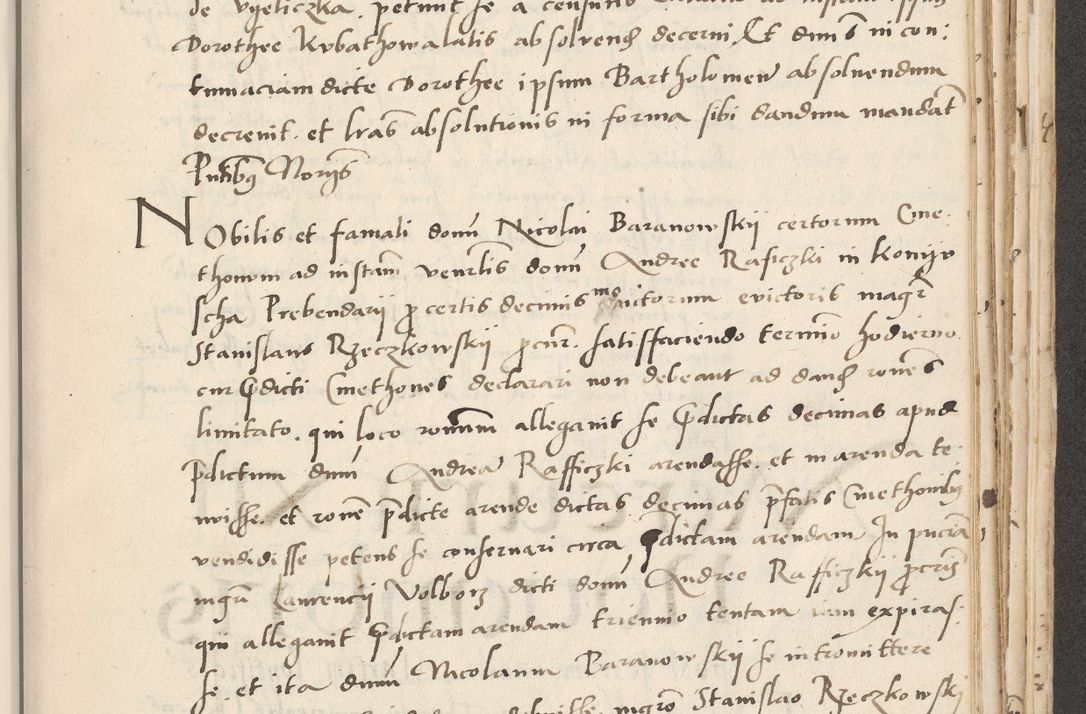 de Vgeliczka. petiuit se a censuris
Dorothee Kvbathowalatis absoluend decerni, Et dnus in con:
tumaciam dicte Dorothee ipsum Bartholomeu absoluendum
decreuit. et lras absolutionis in forma sibi dandum mandat
Pntibus Norys
NObilis et famati domi Nicolai Baranowskij certorum Cme-
thonum ad instam venrlis domi Andree Raficzki in Konijv
scha Prebendarij p certis decimis mo auctorum evictoris magri
Stanislaus Rzeczkowskij pcur. satisffaciendo termino hodierno
cur pdicti Cmethones declarari non debeant ad dand rones
limitato. qui loco ronum allegauit se pdictas decimas apud
pdictum dnum Andrea Rafficzki arendasse. et in arenda te-
nuisse. et rone pdicte arende dictas decimas pfatis Cmethonibus
vendidisse petens se conseruari circa pdictam arendam In pncia
mgri Laurencij Volborz dicti domi Andree Rafficzkij pcris
qui allegauit pdictam arendam triennio tentam iam expiras-
se. et ita dnum Nicolaum Baranowskij se intromittere
mgro Stanislao Rzeczkowski